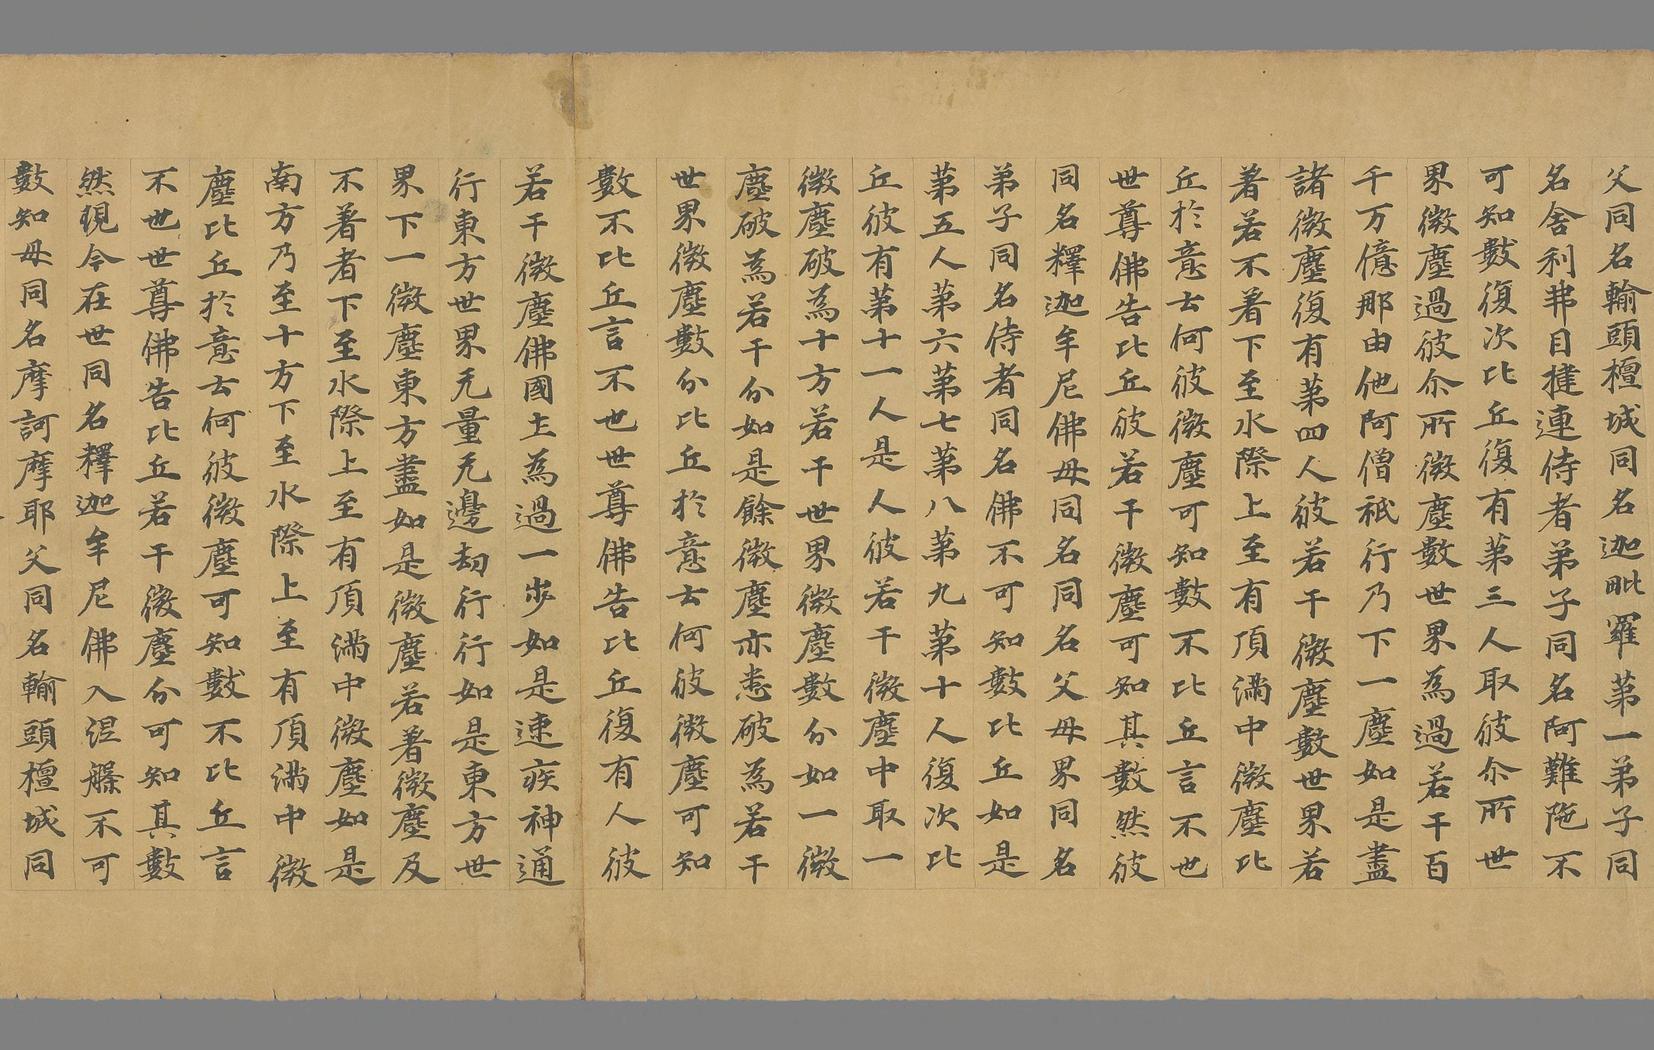 父同名輸頭檀城同名迦毗羅第一弟子同
名舍利弗目揵連侍者弟子同名阿難陁不
可知數復次比丘復有第三人取彼尒所世
界微塵過彼尒所微塵數世界為過若干百
千万億那由他阿僧祇行乃下一塵如是盡
諸微塵復有第四人彼若干微塵數世界若
著若不著下至水際上至有頂滿中微塵比
丘於意云何彼微塵可知數不比丘言不也
世尊佛告比丘彼若干微塵可知其數然彼
同名釋迦牟尼佛母同名同名父母界同名
弟子同名侍者同名佛不可知數比丘如是
第五人第六第七第八第九第十人復次比
丘彼有第十一人是人彼若干微塵中取一
微塵破為十方若干世界微塵數分如一微
塵破為若干分如是餘微塵亦悉破為若干
世界微塵數分比丘於意云何彼微塵可知
數不比丘言不也世尊佛告比丘復有人彼
若干微塵佛國土為過一步如是速疾神通
行東方世界无量无邊劫行行如是東方世
界下一微塵東方盡如是微塵若著微塵及
不著者下至水際上至有頂滿中微塵如是
南方乃至十方下至水際上至有頂滿中微
塵比丘於意云何彼微塵可知數不比丘言
不也世尊佛告比丘若干微塵分可知其數
然現今在世同名釋迦牟尼佛入涅槃不可
數知母同名摩訶摩耶父同名輸頭檀城同